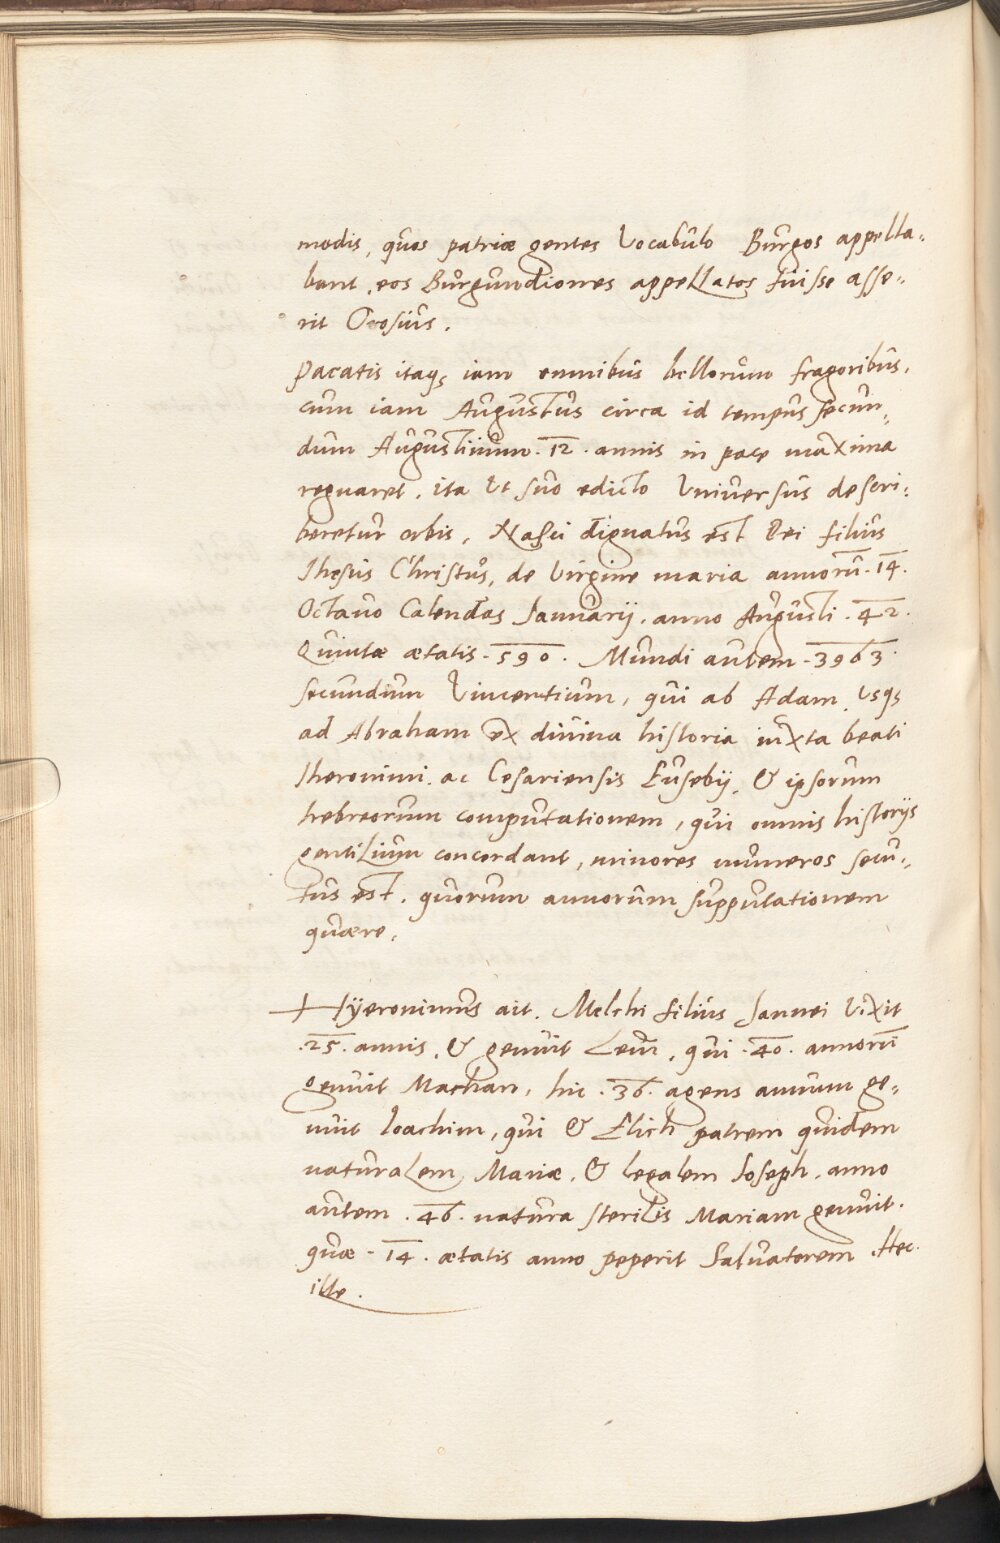 modis, quos patriæ gentes Vocabulo Burgos appella-
bant, eos Burgundiones appellatos fuisse asse-
rit Orosius.
Pacatis itaqȝ iam omnibus bellorum fragoribus,
cum iam Augustus circa id tempus secun-
dum Augustinum .12. annis in pace maxima
regnaret, ita Vt suo edicto Vniversus descri-
beretur orbis, Nasci dignatus est Dei filius
Jhesus Christus, de Virgine maria annorū .14.
Octavo Calendas Januarij. anno Augusti .42.
Quintæ ætatis .590. Mundi autem .3963.
secundum Vincentium, qui ab Adam Vsqȝ
ad Abraham ex divina historia iuxta beati
Iheronimi. ac Cesariensis Eusebij, & ipsorum
hebreorum computationem, qui omnis historijs
gentilium concordant, minores numeros secu-
tus est. quorum annorum supputationem
quære,
Hyeronimus ait. Melchi filius Jannei Vixit
.25. annis, & genuit Levi, qui .40. annorū
genuit Machan, hic .36. agens annum ge-
nuit Ioachim, qui & Elich patrem quidem
naturalem Mariæ, & legalem Joseph, anno
autem .46. natura sterilis Mariam genuit.
quæ .14. ætatis anno peperit Salvatorem. Hec
ille.